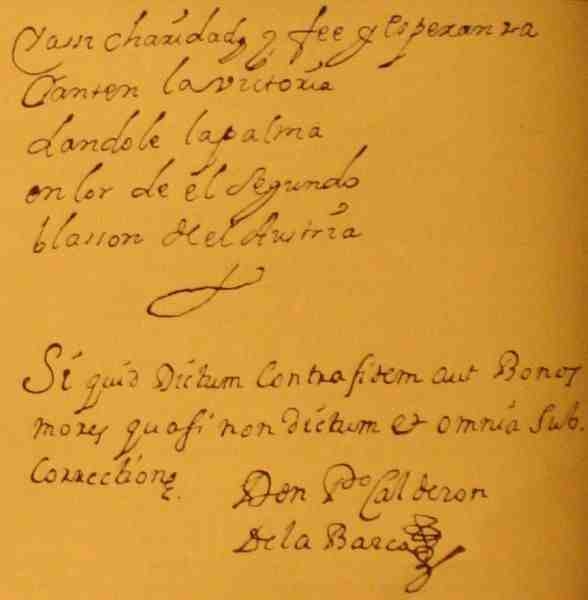 Yassi charidad, y fee y esperanza
Canten la victoria
dandole la palma
en lor de el segundo
blasson de el Austria
Si quid Dictum Contra fidem aut Bonos
mores quasi non dictum et omnia sub.
Correctione.
Don Pdo Calderon
De la Barca